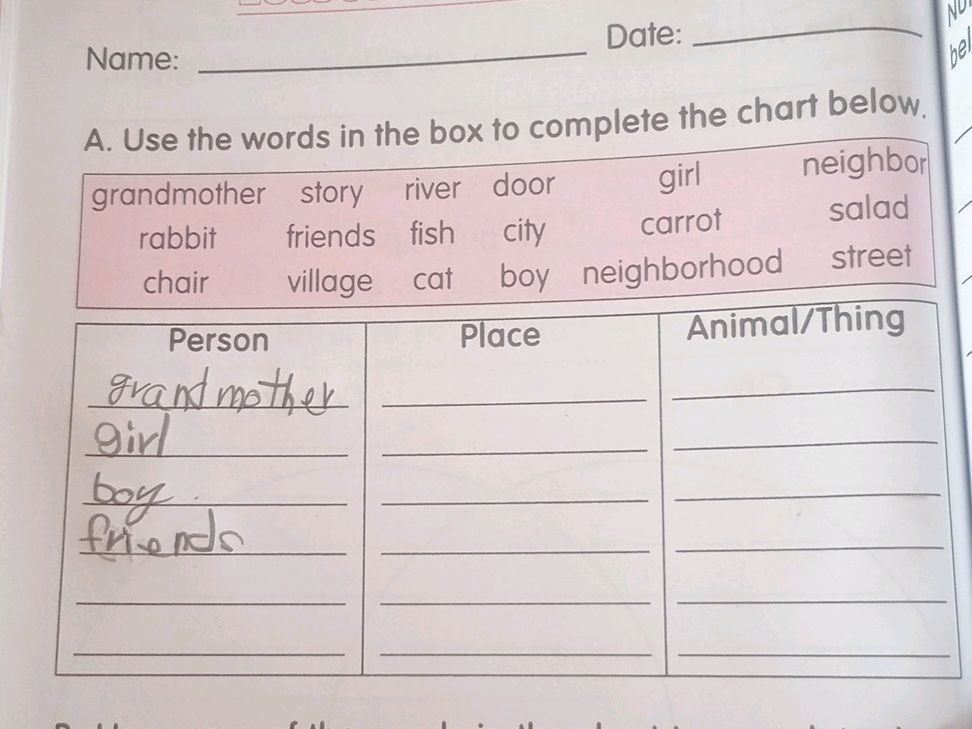 Name: Date:
A. Use the words in the box to complete the chart below.
grandmother story river door girl neighbor
rabbit friends fish city carrot salad
chair village cat boy neighborhood street
Person Place Animal/Thing
grandmother
girl
boy
friends